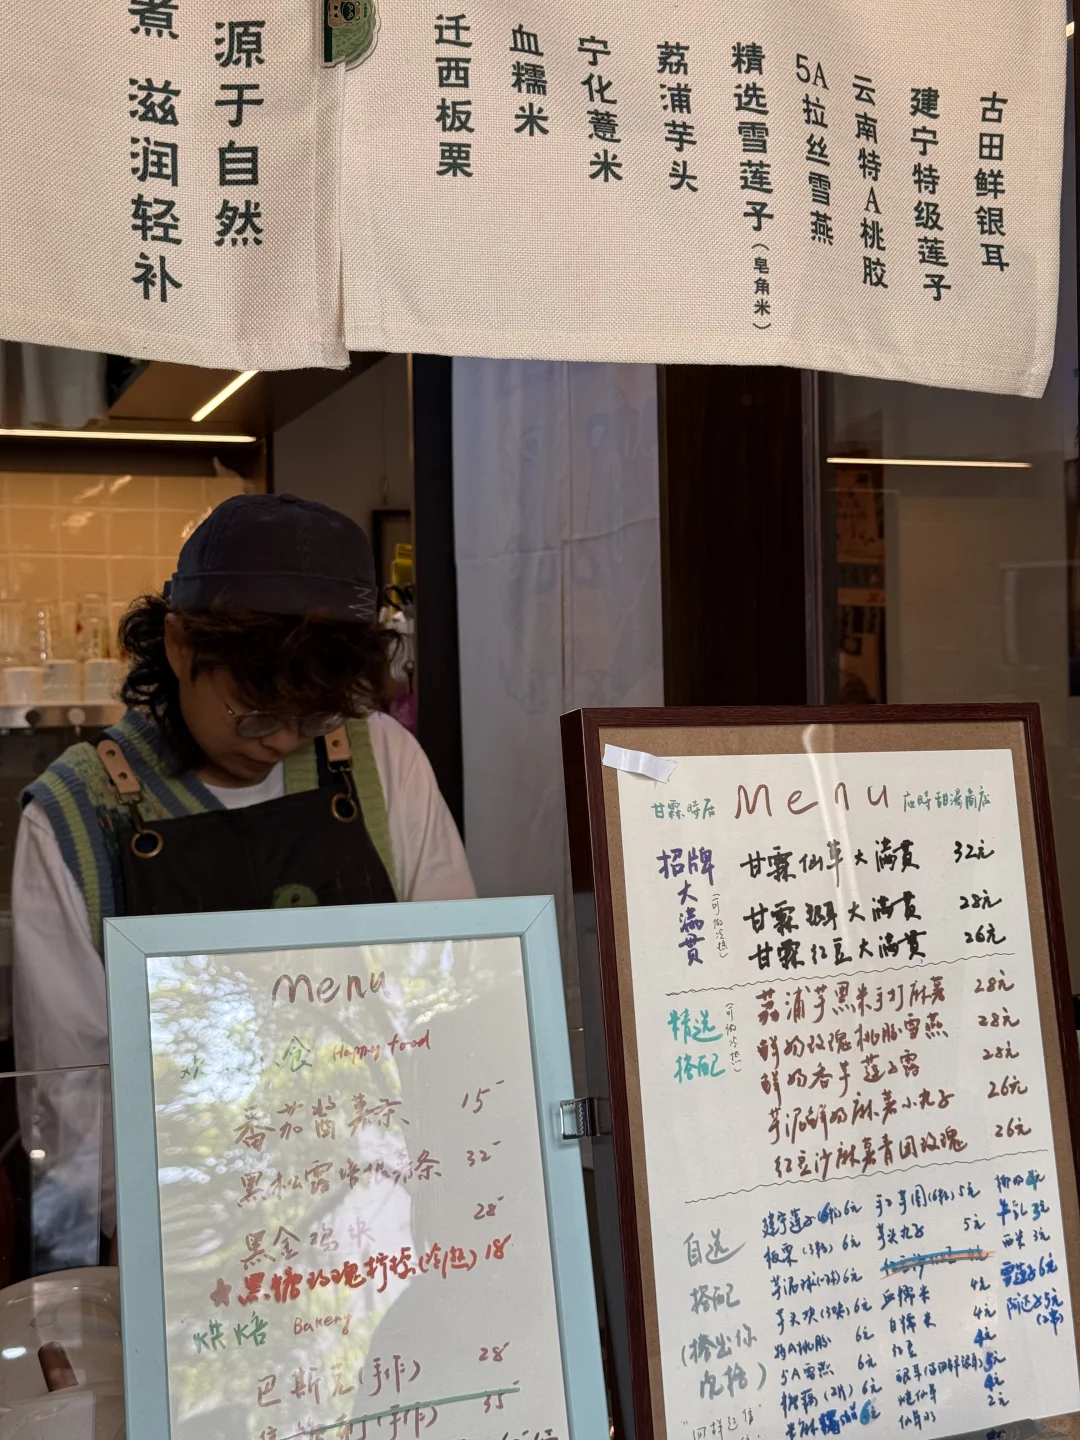 古田鲜银耳
建宁特级莲子
云南特A桃胶
5A拉丝雪燕
精选雪莲子(皂角米)
荔浦芋头
宁化薏米
血糯米
迁西板栗
源于自然
煮 滋润轻补
menu
食 Happy food
番茄酱薯条 15
黑松露 薯条 32
黑金鸡块 28
★黑糖玫瑰柠檬(冷/热) 18
烘焙 Bakery
巴斯克(手作) 28
(手作) 35
甘霖時居 Menu 应時甜湯商店
招牌大满贯(可做冷热)
甘霖仙草大满贯 32元
甘霖银耳大满贯 28元
甘霖红豆大满贯 26元
精选搭配(可做冷热)
荔浦芋黑米手打麻薯 28元
鲜奶玫瑰桃胶雪燕 28元
鲜奶香芋莲子露 28元
芋泥鲜奶麻薯小丸子 26元
红豆沙麻薯青团玫瑰 26元
自选搭配
建宁莲子 6元
板栗(3粒) 6元
芋泥球(1球) 6元
芋头块(3块) 6元
特A桃胶 6元
5A雪燕 6元
手工芋圆(6粒) 5元
芋头丸子 5元
血糯米 4元
白糯米 4元
红豆 4元
烧仙草 4元
仙草冻 2元
西米 3元
雪莲子 6元